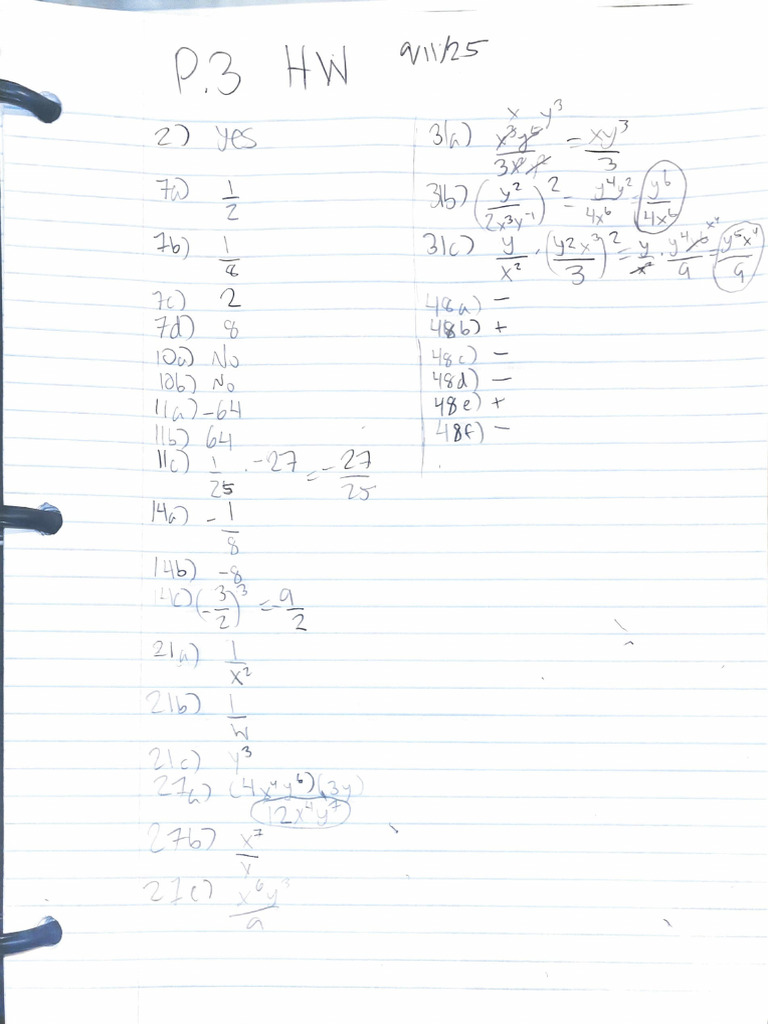 P.3 HW 9/11/25
2) yes
7a) 1/2
7b) 1/8
7c) 2
7d) 8
10a) No
10b) No
11a) -64
11b) 64
11c) 1/25 · -27 = -27/25
14a) -1/8
14b) -8
14c) (-3/2)^3 = -9/2
21a) 1/x^2
21b) 1/w
21c) y^3
27a) (4x^4y^6)(3y)
12x^4y^7
27b) x^7/y
27c) x^6y^3/9
31a) x^3y^5/3x^2y^2 = xy^3/3
31b) (y^2/2x^3y^-1)^2 = y^4y^2/4x^6 = y^6/4x^6
31c) y/x^2 · (y2x^3/3)^2 = y/x^2 · y^4x^6/9 = y^5x^4/9
48a) -
48b) +
48c) -
48d) -
48e) +
48f) -